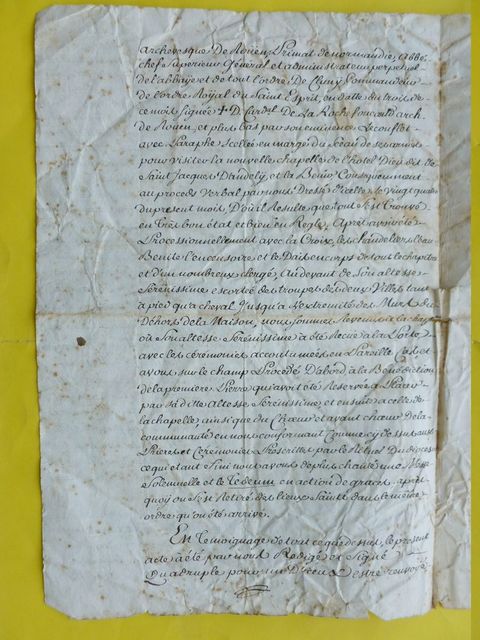 archevesque de Rouen, Primat de normandie, abbé
chef superieur General et administrateur perpetuel
de l'abbaye et de tout l'ordre De Cluny Commandeur
de l'ordre Royal du Saint Esprit, en datte du trois de
ce mois signée + D. Card.l De La Rochefoucauld arch.
de Rouen, et plus bas par son eminence
avec Paraphe Scellée en marge du Sceau de ses armes
pour visiter la nouvelle chapelle de l'hotel Dieu de
Saint Jacques D'andely, et la Benir, Consequemment
au procès verbal par nous Dressé icelle le vingt quatre
du present mois, D'où il Resulte que tout s'est trouvé
en très bon état et bien en Regle, Après avoir été
Processionnellement avec la Croix, les chandeliers l'eau
Benite l'encensoire et le Dais en corps de tout le chapitre
et d'un nombreux clergé, au devant de Son altesse
Sérénissime escortée des troupes des deux Villes tant
a pied qu'a cheval Jusqu'a l'extremité des Murs du
Déhors de la Maison, nous sommes Revenus a la
où Son altesse Sérénissime a été Recue a la Porte
avec les cérémonies accoutumées en Pareille Cas, et
avons sur le champ Procédé D'abord à la Bénédiction
de la premiere Pierre qui avoit été Reservée a
par Sa ditte Altesse Sérénissime, et ensuite a celle de
la chapelle, ainsi que du Chœur et avant chœur de la
communauté en nous conformant Comme cy dessus aux
Prieres et Ceremonies Prescrittes par le Rituel Du diocese
ce qui etant fini nous avons depuis chanté une Messe
Solemnelle et le te deum en action de graces, après
quoy on s'est Retiré des lieux Saints dans le même
ordre qu'on été arrivé.
En temoignage de tout ce que dessus, le present
acte a été par nous Redigé et Signé
Quadruple pour un D'iceux Estre renvoyé